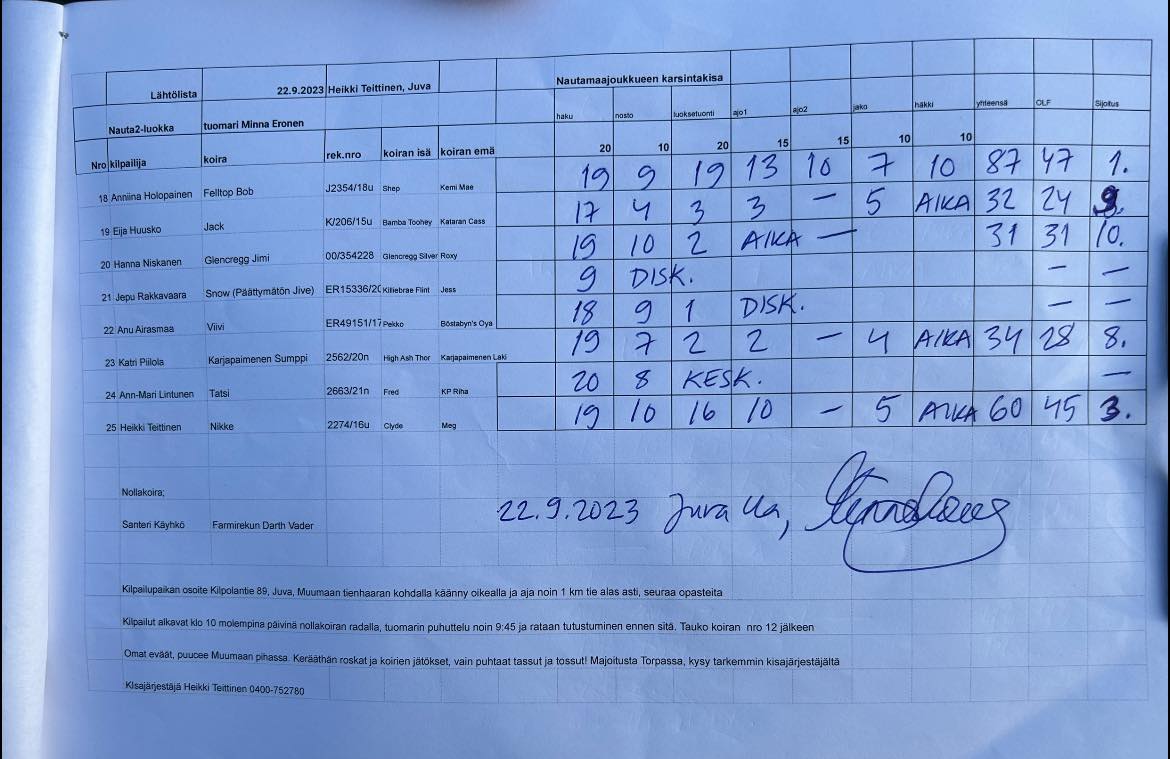 Nautamaajoukkueen karsintakisa
Lähtölista 22.9.2023 Heikki Teittinen, Juva
haku nosto luoksetuonti ajo1 ajo2 jako häkki yhteensä OLF Sijoitus
Nauta2-luokka tuomari Minna Eronen
20 10 20 15 15 10 10
Nro kilpailija koira rek.nro koiran isä koiran emä
18 Anniina Holopainen Felltop Bob J2354/18u Shep Kemi Mae 19 9 19 13 10 7 10 87 47 1.
19 Eija Huusko Jack K/206/15u Bamba Toohey Kataran Cass 17 4 3 3 – 5 AIKA 32 24 9.
20 Hanna Niskanen Glencregg Jimi 00/354228 Glencregg Silver Roxy 19 10 2 AIKA – 31 31 10.
21 Jepu Rakkavaara Snow (Päättymätön Jive) ER15336/20 Killiebrae Flint Jess 9 DISK. – –
22 Anu Airasmaa Viivi ER49151/17 Pekko Böstabyn's Oya 18 9 1 DISK. – –
23 Katri Piilola Karjapaimenen Sumppi 2562/20n High Ash Thor Karjapaimenen Laki 19 7 2 2 – 4 AIKA 34 28 8.
24 Ann-Mari Lintunen Tatsi 2663/21n Fred KP Riha 20 8 KESK. –
25 Heikki Teittinen Nikke 2274/16u Clyde Meg 19 10 16 10 – 5 AIKA 60 45 3.
Nollakoira;
22.9.2023 Juvalla,
Santeri Käyhkö Farmirekun Darth Vader
Kilpailupaikan osoite Kilpolantie 89, Juva, Muumaan tienhaaran kohdalla käänny oikealla ja aja noin 1 km tie alas asti, seuraa opasteita
Kilpailut alkavat klo 10 molempina päivinä nollakoiran radalla, tuomarin puhuttelu noin 9:45 ja rataan tutustuminen ennen sitä. Tauko koiran nro 12 jälkeen
Omat eväät, puucee Muumaan pihassa. Kerääthän roskat ja koirien jätökset, vain puhtaat tassut ja tossut! Majoitusta Torpassa, kysy tarkemmin kisajärjestäjältä
KIsajärjestäjä Heikki Teittinen 0400-752780